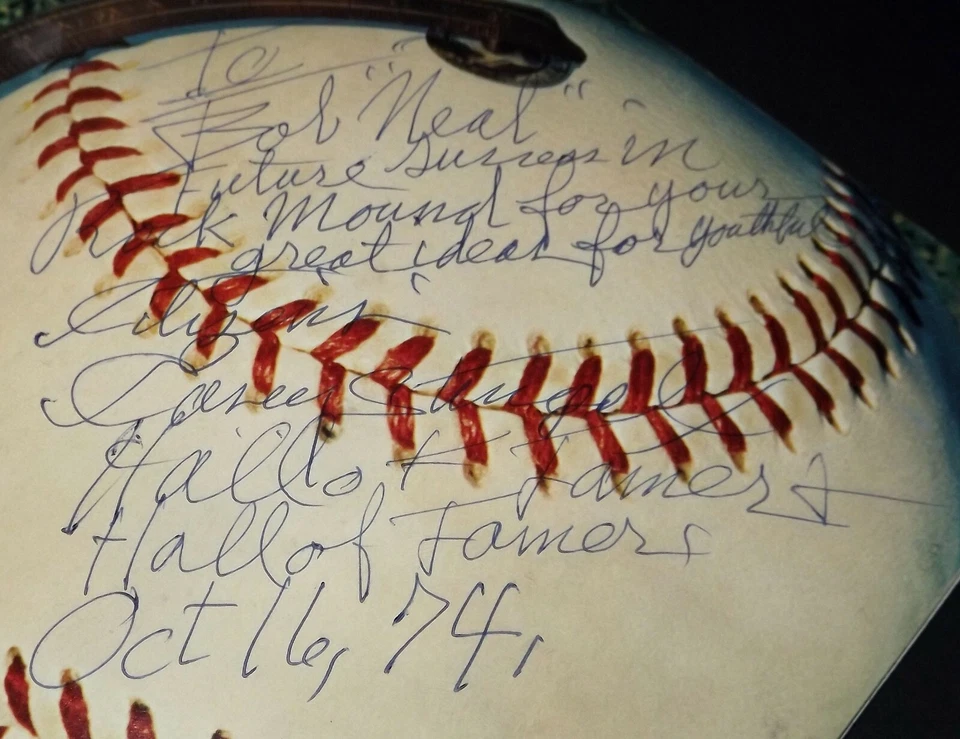 To
Bob "Neal"
Future Success in
Rock Mound for your
great ideas for youthful
Citizens
Casey Stengel
Hall of Famers
Hall of Famers
Oct 16, 74,